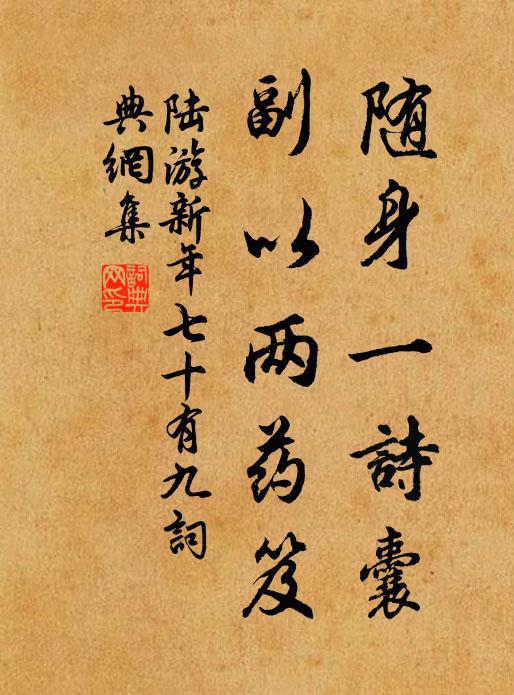 随身一詩囊
副以两药笈
陆游新年七十有九詞
典網集
詞典
网印